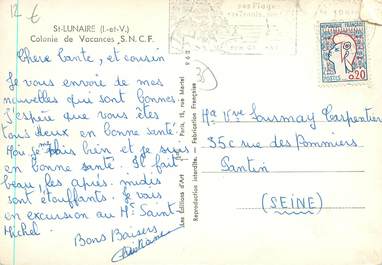 12 €
St-LUNAIRE (I.-et-V.)
Colonie de Vacances S. N. C. F.
Chère tante, et cousin
Je vous envoie de mes
nouvelles qui sont bonnes.
J'espère que vous êtes
tous deux en bonne santé
Moi, je vais bien et je suis
en bonne santé. Il fait
beau, les après-midis
sont étouffants. Je vais
en excursion au Mt Saint
Michel.
Bons Baisers
Christiane
Les Éditions d'Art
Paris, 15, rue Martel
Reproduction interdite. Fabrication
30
RÉPUBLIQUE FRANÇAISE
POSTES
0,20
Carpentier
35c rue des Pommiers
Pantin
(SEINE)